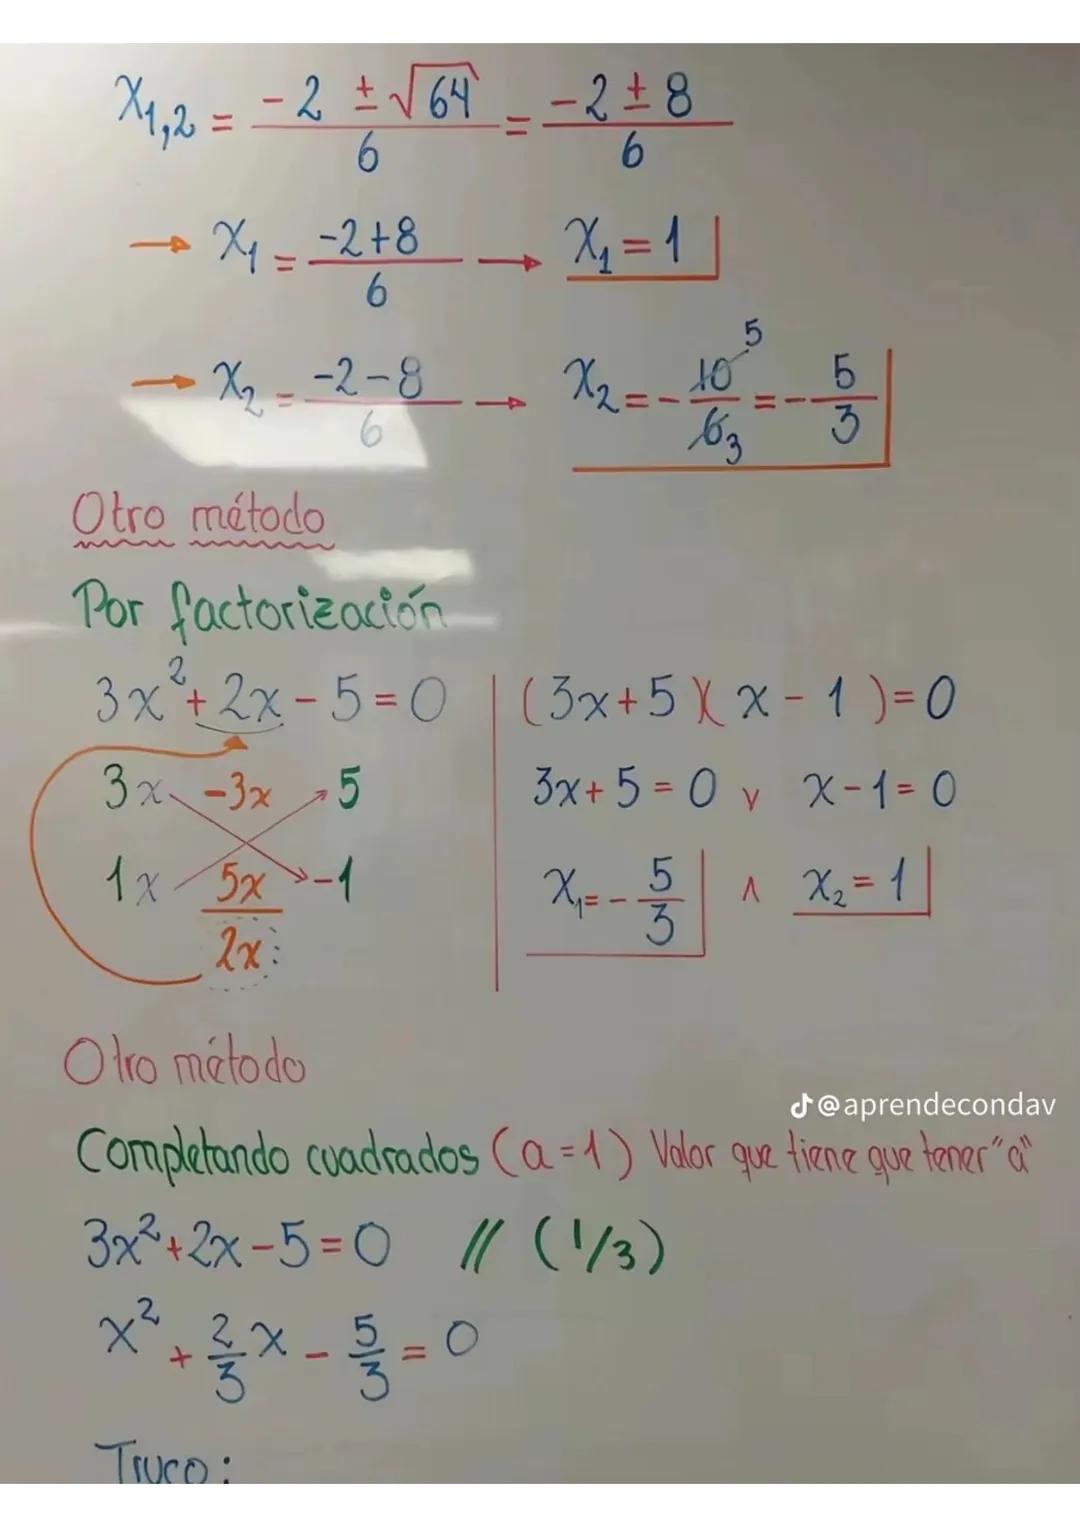 x₁,₂ = (-2 ± √64)/6 = (-2 ± 8)/6
→ x₁ = (-2+8)/6 → x₁ = 1
→ x₂ = (-2-8)/6 → x₂ = -10/6 5 3 = -5/3
Otro método
Por factorización
3x² + 2x - 5 = 0 | (3x+5)(x-1)=0
3x -3x 5 | 3x+5=0 ∨ x-1=0
1x 5x -1 | x₁=-5/3 ∧ x₂=1
2x
Otro método
@aprendecondav
Completando cuadrados (a=1) Valor que tiene que tener "a"
3x²+2x-5=0 // (1/3)
x² + 2/3 x - 5/3 = 0
Truco: